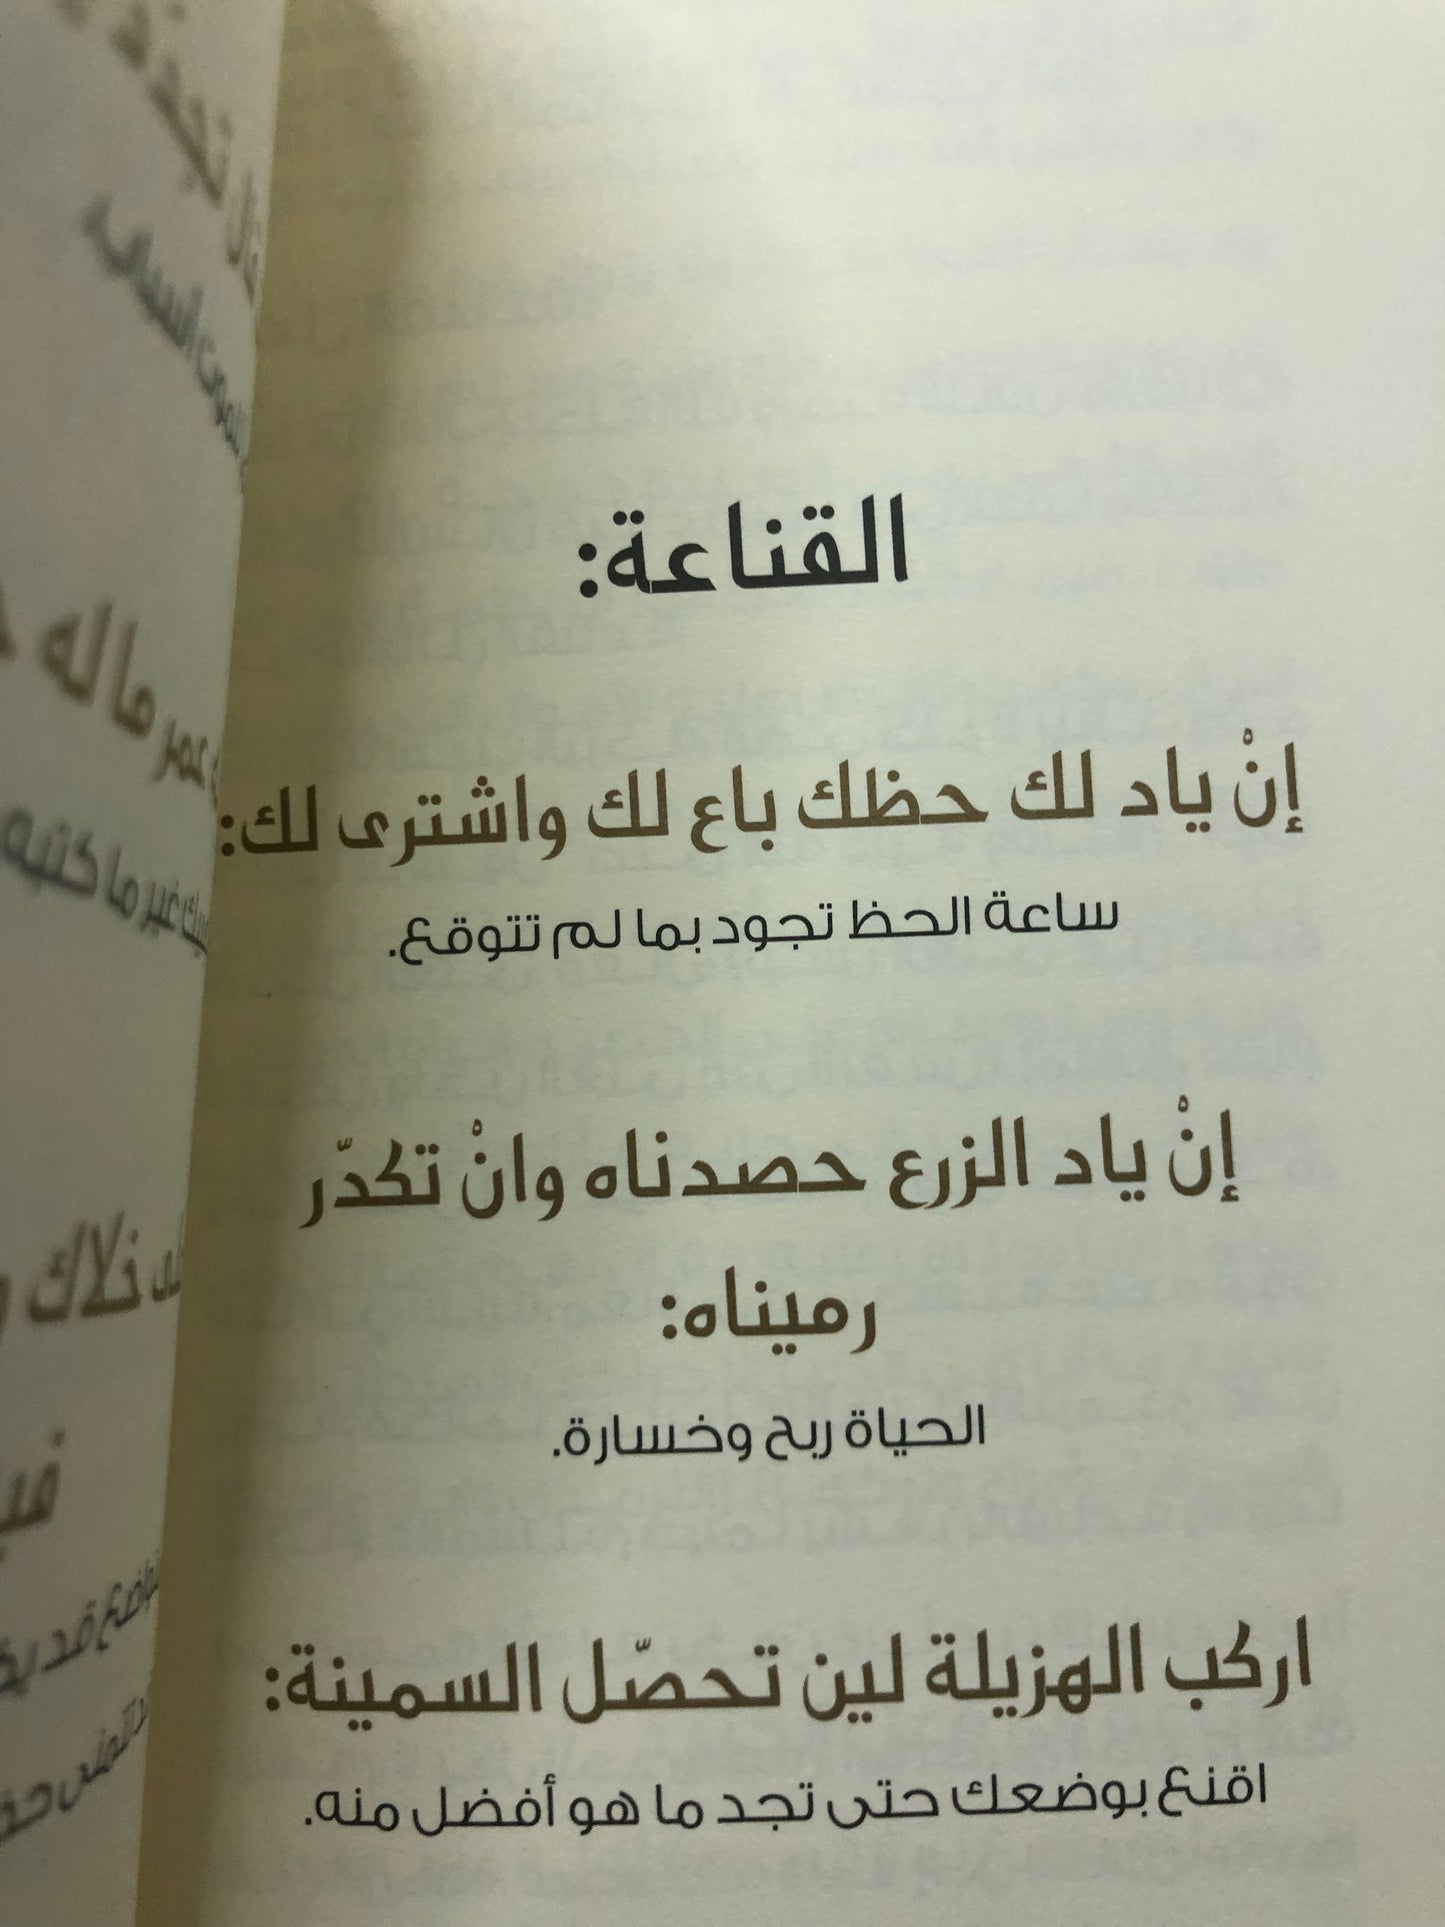 القناعة:
إنْ ياد لك حظك باع لك واشترى لك:
ساعة الحظ تجود بما لم تتوقع.
إنْ ياد الزرع حصدناه وانْ تكدّر
رميناه:
الحياة ربح وخسارة.
اركب الهزيلة لين تحصّل السمينة:
اقنع بوضعك حتى تجد ما هو أفضل منه.
عمر ما له
غير ما كتبه